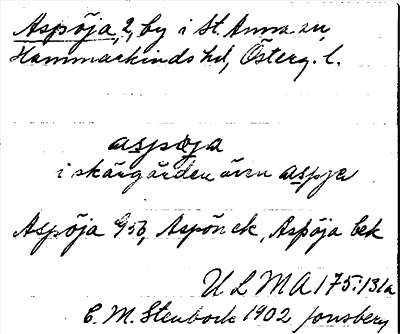 Aspöja, 2, by i St. Anna sn,
Hammarkinds hd, Österg. l.
aspöja
i skärgården även aspja
Aspöja Gsb, Aspön ek, Aspöja bek
ULMA 175:131a
C. M. Stenbock 1902 Jonsberg